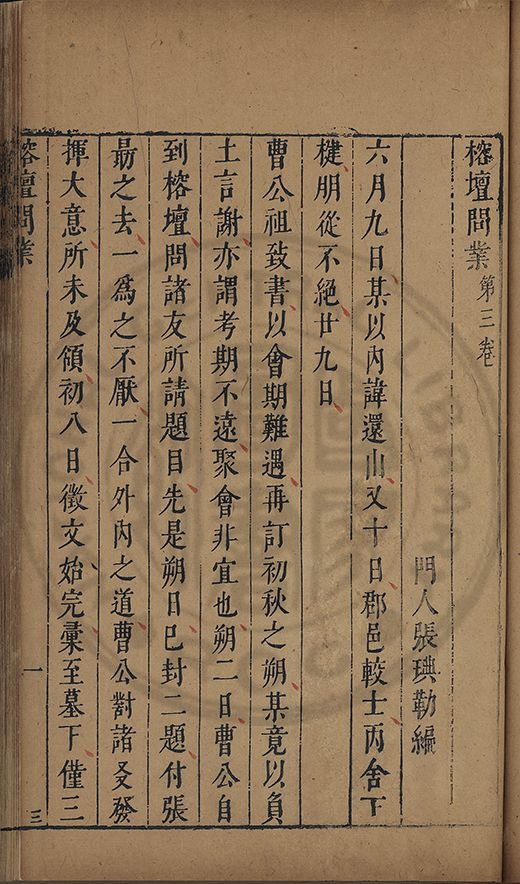 榕壇問業第三卷
門人張㻞勒編
六月九日某以內諱還山又十日郡邑較士丙舍下
楗朋從不絕廿九日
曹公祖致書以會期難遇再訂初秋之朔某竟以負
土言謝亦謂考期不遠聚會非宜也朔二日曹公自
到榕壇問諸友所請題目先是朔日已封二題付張
勗之去一為之不厭一合外內之道曹公對諸友發
揮大意所未及領初八日徵文始完彙至墓下僅三
榕壇問業
一
三